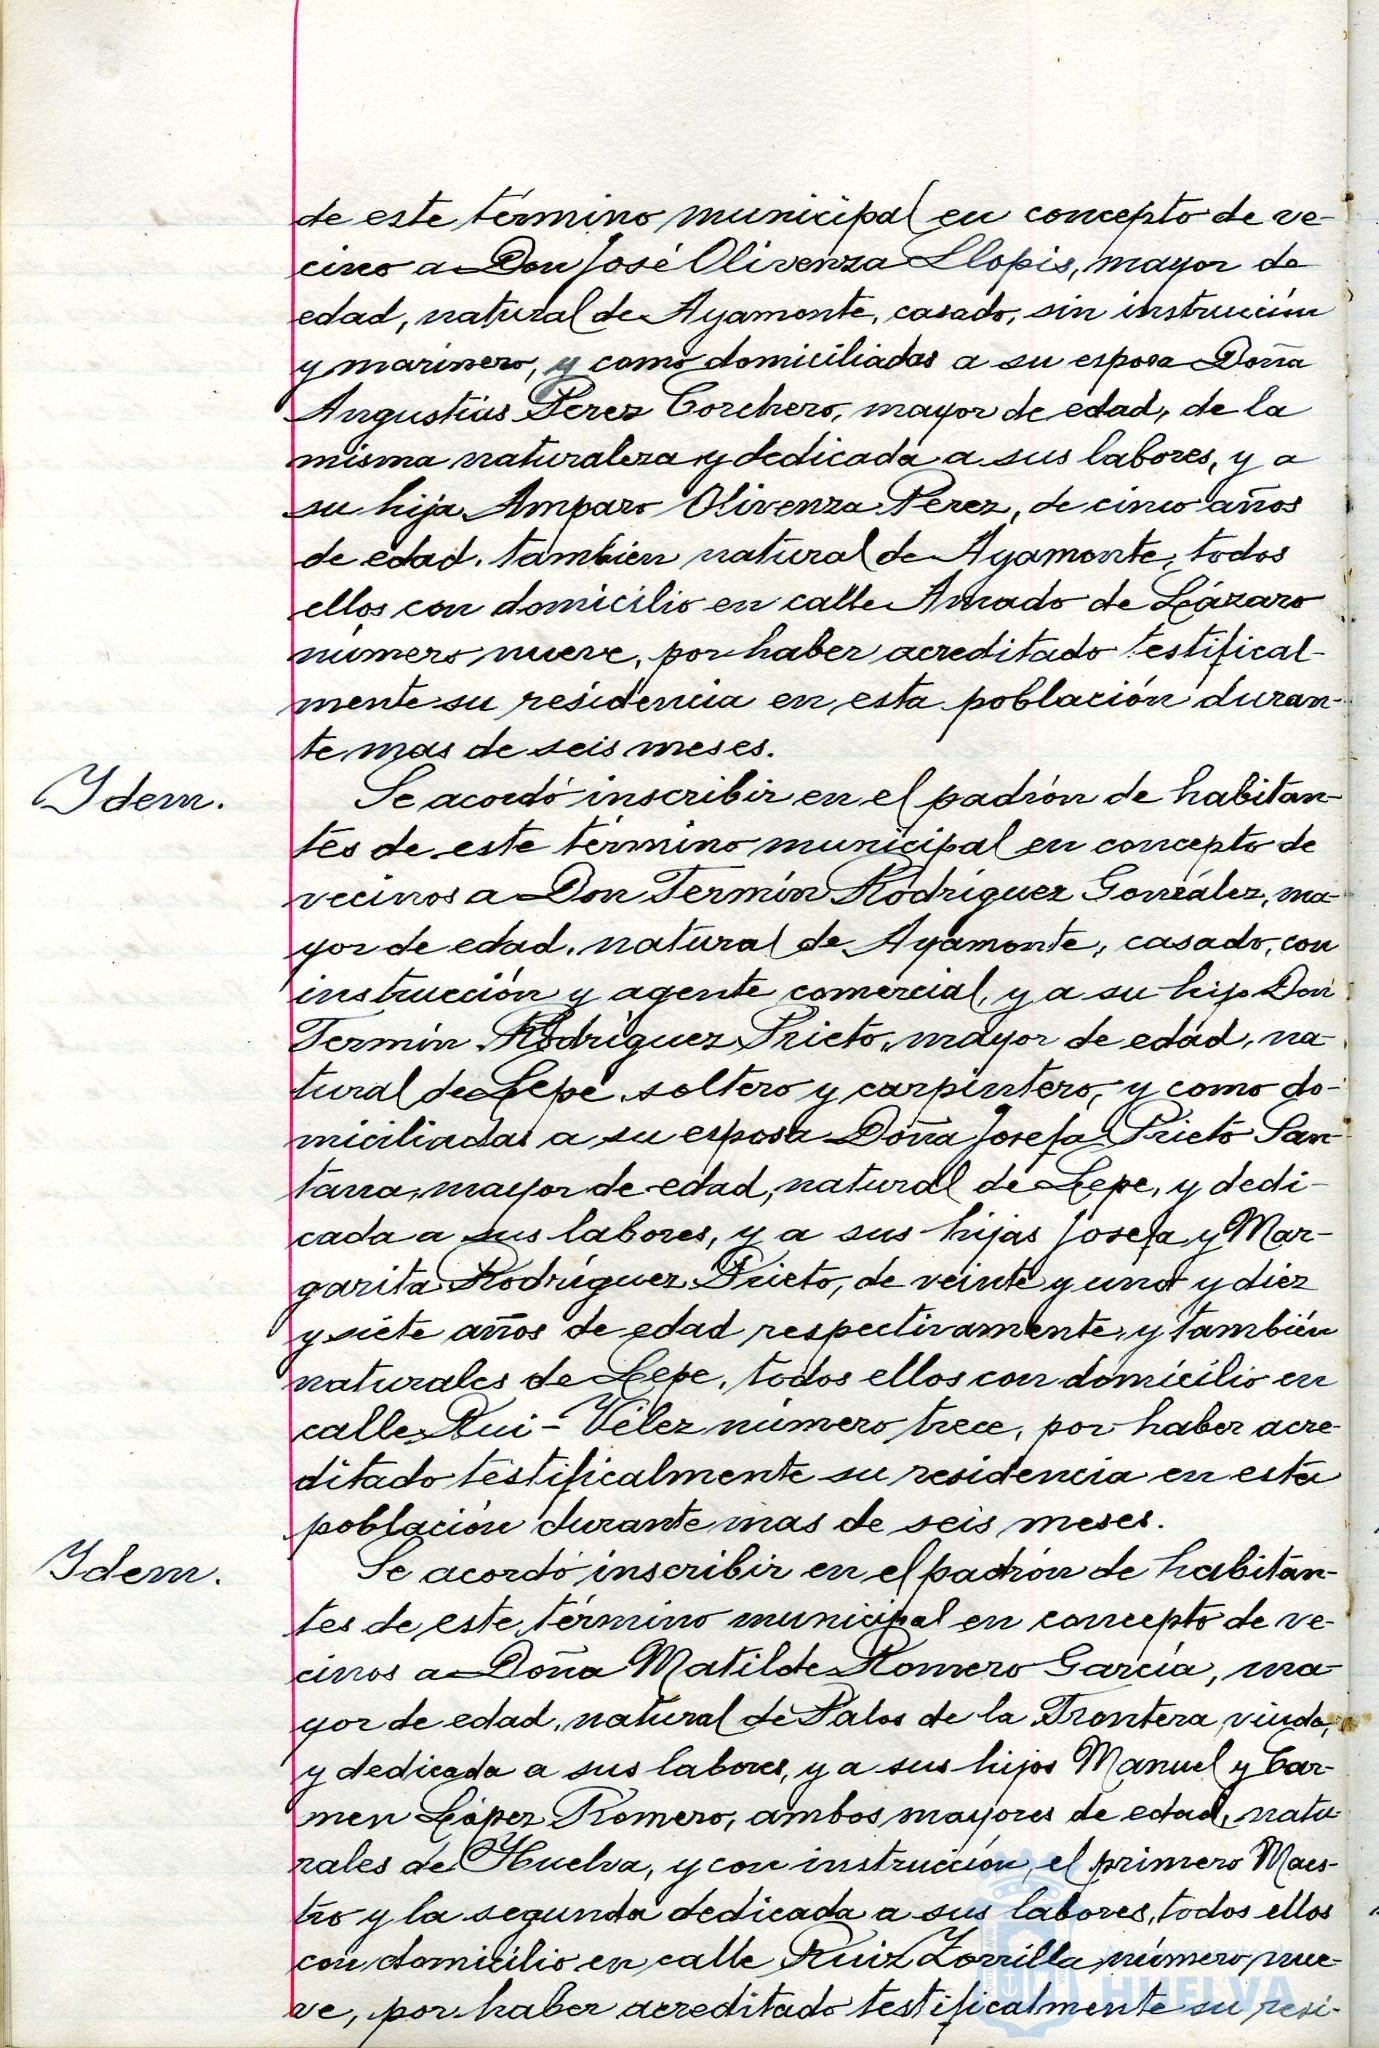 de este término municipal en concepto de ve-
cino a Don José Olivenza Llopis, mayor de
edad, natural de Ayamonte, casado, sin instrucción
y marinero, y como domiciliadas a su esposa Doña
Angustias Perez Corchero, mayor de edad, de la
misma naturaleza y dedicada a sus labores, y a
su hija Amparo Olivenza Perez, de cinco años
de edad, tambien natural de Ayamonte, todos
ellos con domicilio en calle Amado de Lázaro
número nueve, por haber acreditado testifical-
mente su residencia en esta población duran-
te mas de seis meses.
Idem.
Se acordó inscribir en el padrón de habitan-
tes de este término municipal en concepto de
vecinos a Don Fermín Rodríguez González, ma-
yor de edad, natural de Ayamonte, casado, con
instrucción y agente comercial, y a su hijo Don
Fermín Rodríguez Prieto, mayor de edad, na-
tural de Lepe, soltero y carpintero, y como do-
miciliadas a su esposa Doña Josefa Prieto San-
tana, mayor de edad, natural de Lepe, y dedi-
cada a sus labores, y a sus hijas Josefa y Mar-
garita Rodríguez Prieto, de veinte y una y diez
y siete años de edad respectivamente, y también
naturales de Lepe, todos ellos con domicilio en
calle Rui-Vélez número trece, por haber acre-
ditado testificalmente su residencia en esta
población durante mas de seis meses.
Idem.
Se acordó inscribir en el padrón de habitan-
tes de este término municipal en concepto de ve-
cinos a Doña Matilde Romero García, ma-
yor de edad, natural de Palos de la Frontera, viuda,
y dedicada a sus labores, y a sus hijos Manuel y Car-
men López Romero, ambos mayores de edad, natu-
rales de Huelva, y con instrucción, el primero Maes-
tro y la segunda dedicada a sus labores, todos ellos
con domicilio en calle Ruiz Zorrilla número nue-
ve, por haber acreditado testificalmente su resi-
HUELVA